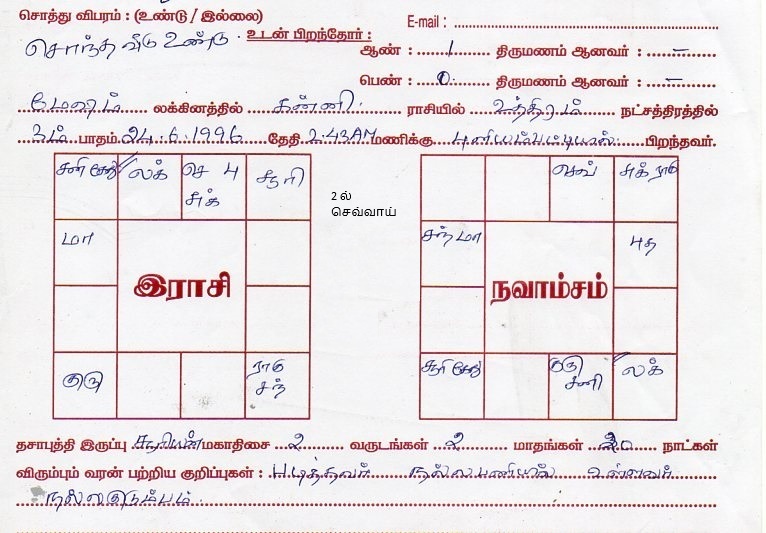 சொத்து விபரம் : (உண்டு / இல்லை) E-mail :
சொந்த வீடு உண்டு. உடன் பிறந்தோர் : ஆண் : 1 திருமணம் ஆனவர் : –
பெண் : 0 திருமணம் ஆனவர் : –
மேஷம் லக்கினத்தில் கன்னி ராசியில் உத்திரம் நட்சத்திரத்தில்
பாதம் 24.6.1996 தேதி 2.43AM மணிக்கு பிறந்தவர்.
சனி கேது லக் செ பு சுக் சூரி
மா
இராசி
குரு ராகு சந்
2ல் செவ்வாய்
செவ் சுக் ராகு
சந் மா புத
நவாம்சம்
சூரி கேது குரு சனி லக்
தசாபுத்தி இருப்பு சூரியன் மகாதிசை 2 வருடங்கள் 2 மாதங்கள் 20 நாட்கள்
விரும்பும் வரன் பற்றிய குறிப்புகள் : படித்தவர் நல்ல பணியில் உள்ளவர்
நல்ல குடும்பம்.